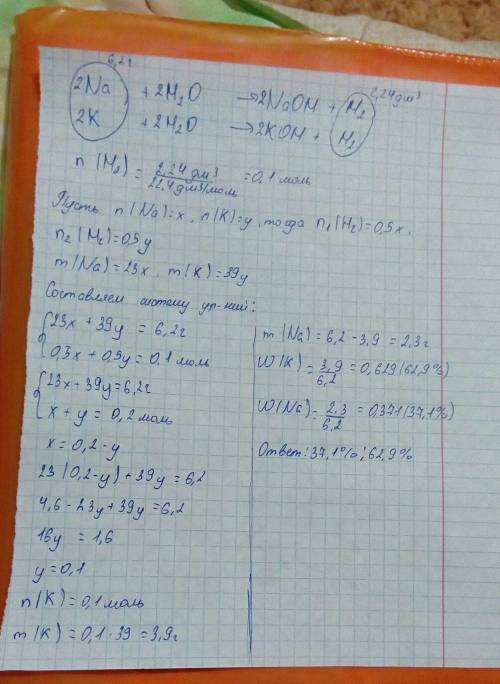 6,2г
2,24 дм³
2Na + 2H₂O → 2NaOH + H₂
2K + 2H₂O → 2KOH + H₂
n(H₂) = 2,24 дм³ / 22,4 дм³/моль = 0,1 моль
Пусть n(Na)=x, n(K)=y, тогда n₁(H₂)=0,5x,
n₂(H₂)=0,5y
m(Na)=23x, m(K)=39y
Составляем систему ур-ний:
{23x + 39y = 6,2г
0,5x + 0,5y = 0,1 моль
{23x + 39y = 6,2г
x + y = 0,2 моль
x = 0,2 - y
23(0,2-y) + 39y = 6,2
4,6 - 23y + 39y = 6,2
16y = 1,6
y = 0,1
n(K) = 0,1 моль
m(K) = 0,1 · 39 = 3,9г
m(Na) = 6,2 - 3,9 = 2,3г
W(K) = 3,9 / 6,2 = 0,629 (62,9%)
W(Na) = 2,3 / 6,2 = 0,371 (37,1%)
Ответ: 37,1%; 62,9%